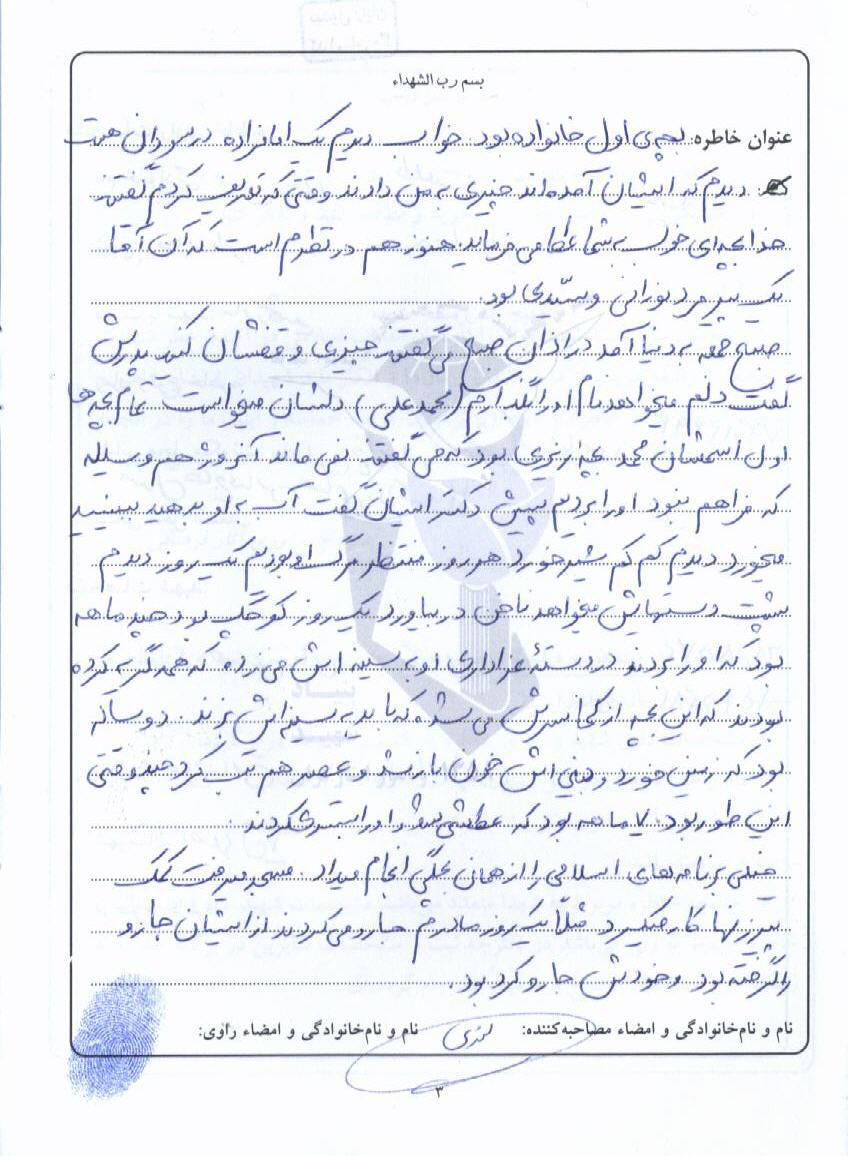 بسم رب الشهداء
عنوان خاطره: بچه‌ی اول خانواده بود. خواب دیدم یک امامزاده در سروان هست
دیدم که ایشان آمده‌اند چیزی به من دادند وقتی که تعریف کردم گفتند
خدا بچه‌ای خوب به شما عطا می فرماید. هنوز هم در نظرم است که آن آقا
یک پیرمرد نورانی و سیّدی بود.
صبح جمعه به دنیا آمد در اذان صبح می گفتند چیزی وقفشان کنید پدرش
گفت دلم میخواهد نام او را بگذارم (محمدعلی) دلشان میخواست تمام بچه ها
اول اسمشان محمد بچه ریزی بود که می گفتند نمی ماند آنروز هم وسیله
که فراهم نبود او را بردیم پیش دکتر ایشان گفت آب به او بدهید ببینید
میخورد دیدم کم کم شیر خورد هر روز منتظر مرگ او بودیم یک روز دیدم
پشت دستهایش میخواهد ناخن در بیاورد یک روز کوچک بود چند ماهه
بود که او را بردند در دستهٔ عزاداری او به سینه اش می زده که همه گریه کرده
بودند که این بچه از کجا سرش می شده که باید به سینه‌اش بزند. دو ساله
بود که زمین خورد و بینی اش خون باز شد و عصر هم تب کرد چند وقتی
این طور بود. ۷ ماهه بود که عطشی شد او را بستری کردند.
خیلی برنامه‌های اسلامی را از همان بچگی انجام میداد. مسجد میرفت کمک
پیرزنها کار میکرد. مثلاً یک روز مادرم جارو می کردند از ایشان جارو
را گرفته بود و خودش جارو کرد بود.
نام و نام‌خانوادگی و امضاء مصاحبه‌کننده: نام و نام‌خانوادگی و امضاء راوی:
۳